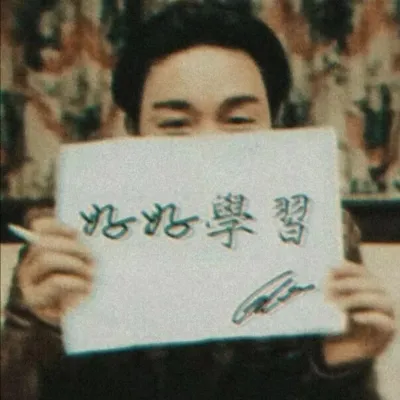 好好學習